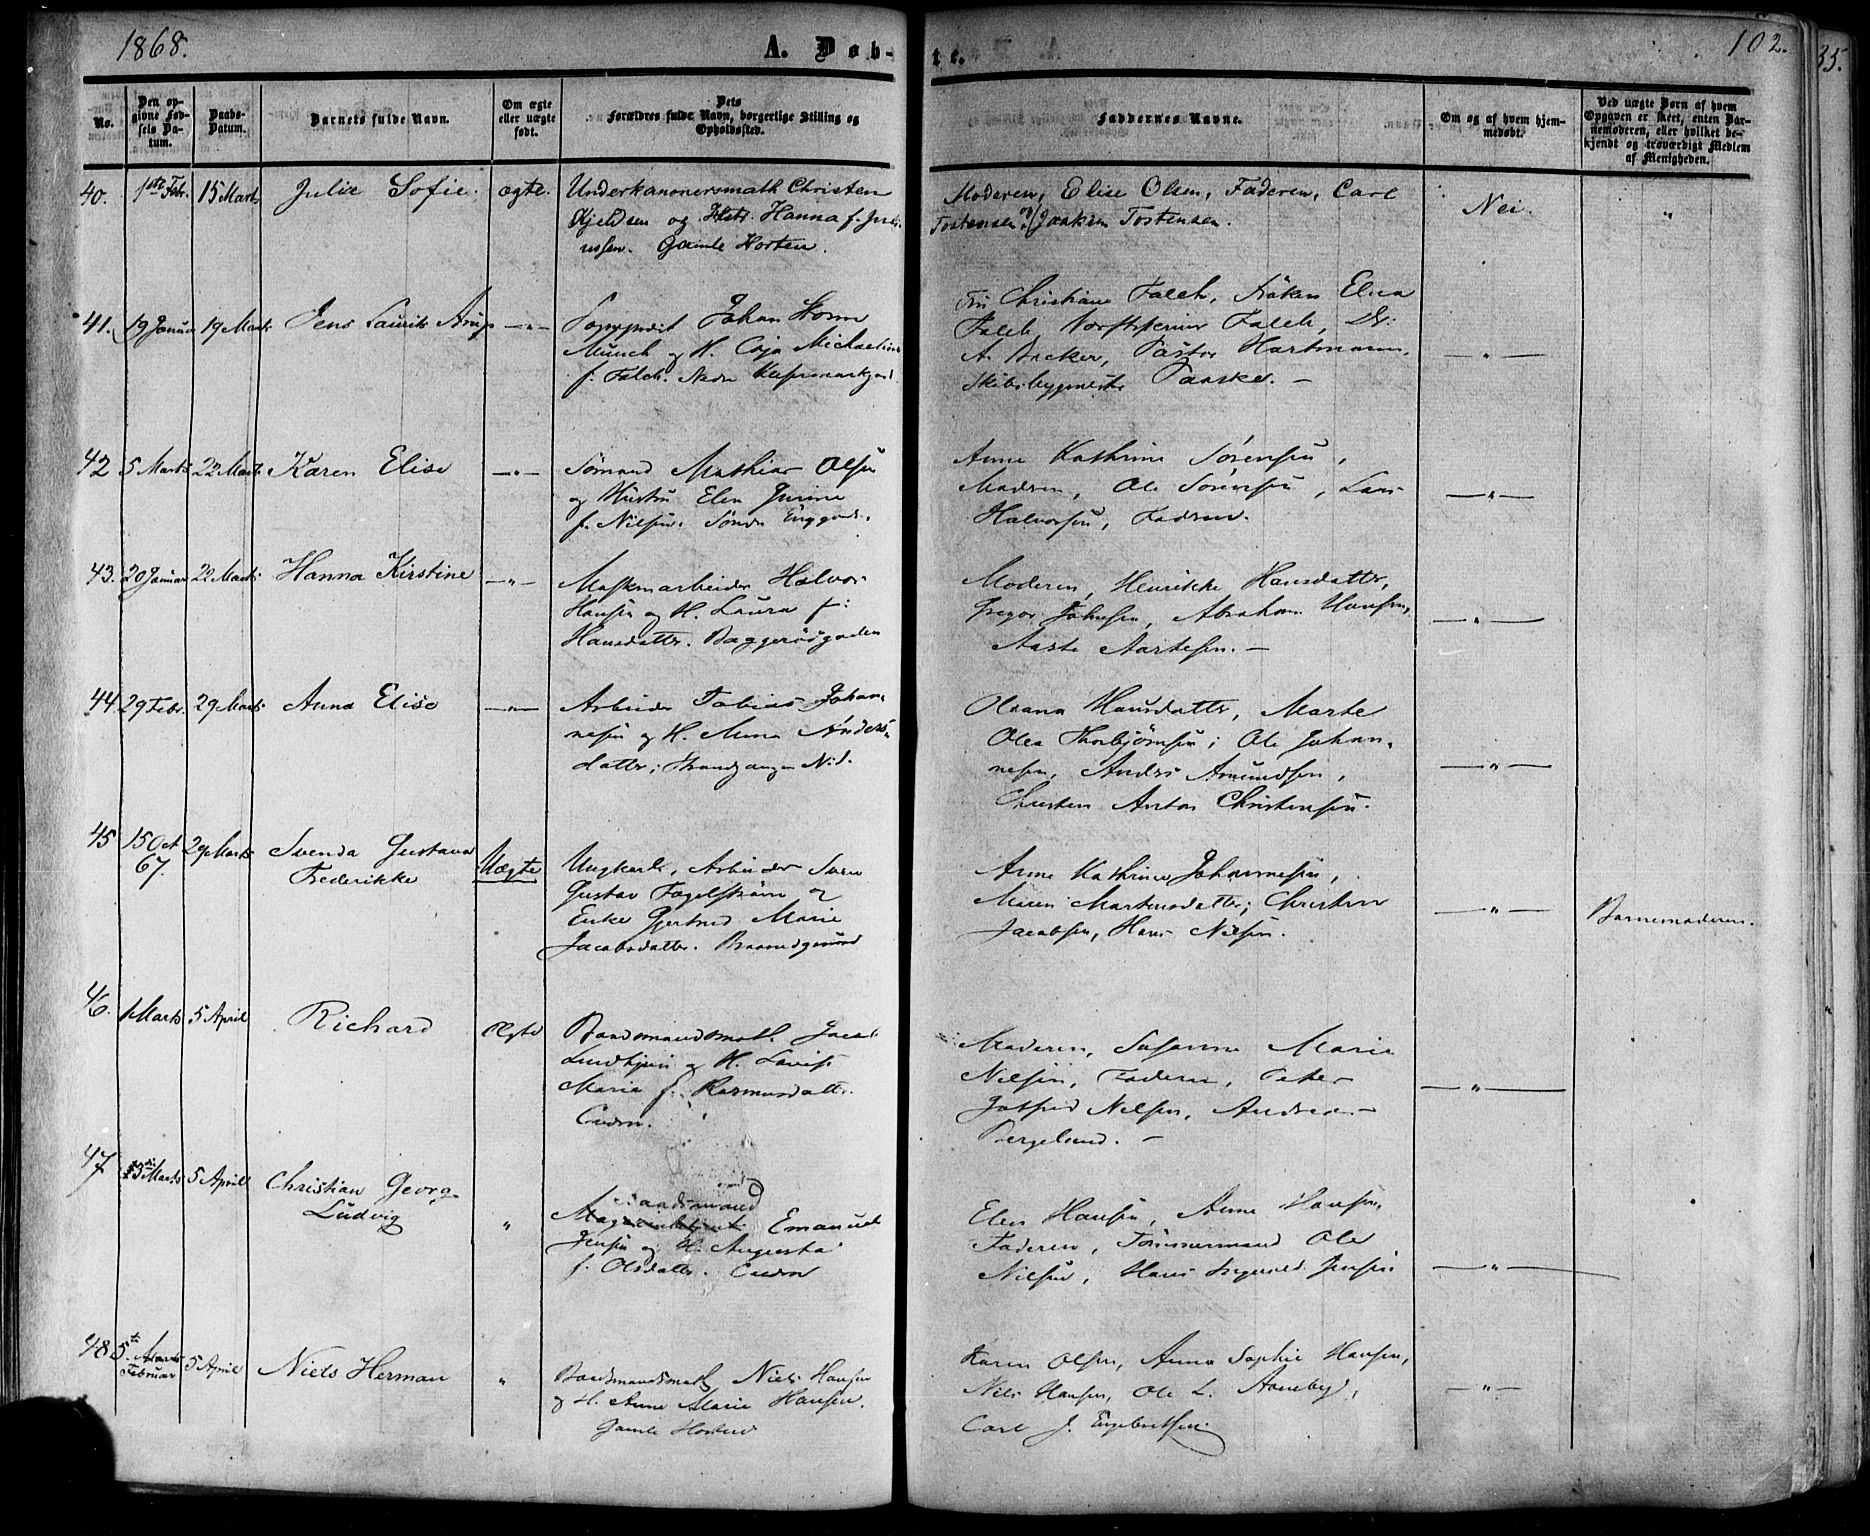 1868.
A. Døb-
te.
102.
35.
No.
Den op-
givne Fød-
sels Da-
tum.
Daabs-
Datum.
Barnets fulde Navn.
Om ægte
eller uægte
født.
Dets
Forældres fulde Navn, borgerlige Stilling og
Opholdssted.
Faddernes Navne.
Om og af hvem hjem-
medøbt.
Ved uægte Børn af hvem
Opgaven er skeet, enten Bar-
nemoderen, eller hvilket be-
kjendt og troværdigt Medlem
af Menigheden.
40.
1ste Febr.
15 Marts
Julie Sofie.
ægte.
Underkanonersmath Christen
Kjeldsen og Hstr. Hanna f. Juli-
ussen. Gamle Horten.
Moderen, Elise Olsen, Faderen, Carl
Tostensen og Joakim Tostensen.
Nei.
"
41.
19 Januar
19 Marts
Jens Laurits Arup
—"—
Johan Storm
Munch og H. Caja Michaeline
f. Falch. Nedre
Fru Christiane Falch, Frøken Elisa
Falch, Falch, Dr.
A. Backer, Pastor Hartmann,
Skibsbygmester Paaske. —
—"—
42
5 Marts
22 Marts
Karen Elise
—"—
Sømand Mathias Olsen
og Hustru Elen Gurine
f. Nilsen. Søndre Enggad.
Anne Kathrine Sørensen,
Madsen, Ole Sørensen, Lars
Halvorsen, Faderen.
—"—
43.
20 Januar
22 Marts
Hanna Kirstine
—"—
Maskinarbeider Halvor
Hansen og H. Laura f:
Hansdatter. Baggerødgaden
Moderen, Henrikke Hansdatter,
Gregor Johnsen, Abraham Hansen,
Aaste Aartesen. —
—"—
44.
29 Febr.
29 Marts
Anna Elise
—"—
Arbeider Tobias Johan-
nesen og H. Anna Anders-
datter; Strandgangen N.1.
Oleana Hansdatter, Marte
Olea Thorbjørnsen; Ole Johan-
nesen, Anders Amundsen,
Christen Anton Christensen.
—"—
45
15 Oct
67.
29 Marts
Svenda Gustava
Frederikke
Uægte
Ungkarl, Arbeider Sven
Gustav Fogelstrøm og
Enke Gjertrud Marie
Jacobsdatter. Braarudgrund
Anne Kathrine Johannesen,
Maren Martinsdatter; Christian
Jacobsen, Hans Nilsen.
—"—
Barnemoderen.
46.
1 Marts
5 April
Richard
Ægte
Baadsmandsmath. Jacob
og H. Lovise
Marie f. Rasmusdatter.
Moderen, Susanne Marie
Nilsen, Faderen, Peter
Gotfred Nilsen, Andrea
Bergelund. —
—"—
47
5 Marts
5 April
Christian Georg
Ludvig
"
Emanuel
Jensen og H. Augusta
f. Olsdatter.
Elen Hansen, Anne Hansen,
Faderen, Tømmermand Ole
Nilsen, Hans Ingvald Jensen
—"—
48
5te
Februar
5 April
Niels Herman
"
Baadsmandsmath Niels Hansen
og H. Anne Marie Hansen.
Gamle Horten
Karen Olsen, Anna Sophie Hansen,
Nils Hansen, Ole L. Aaneby,
Carl J. Engebretsen.
—"—